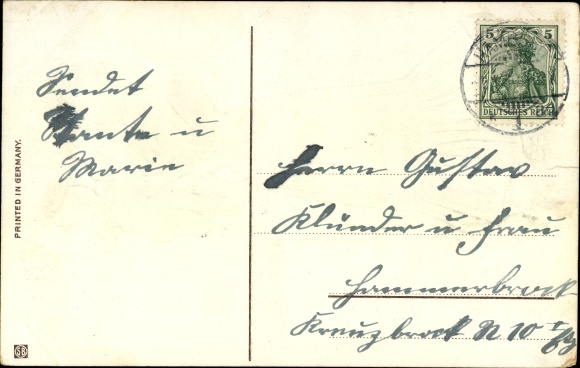 Sendet
Tante u
Marie
PRINTED IN GERMANY.
5 5
DEUTSCHES REICH
Herrn Gustav
Klünder u Frau
Hammerbrook
Kreuzbrook N 10